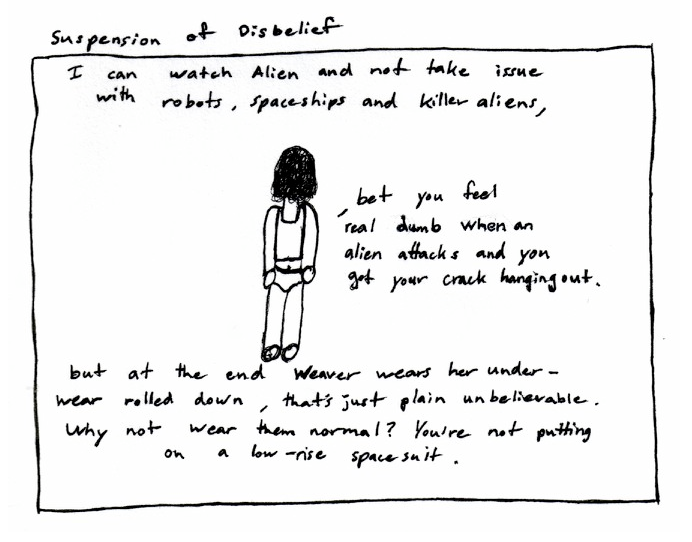 Suspension of Disbelief
I can watch Alien and not take issue
with robots, spaceships and killer aliens,
bet you feel
real dumb when an
alien attacks and you
got your crack hanging out.
but at the end Weaver wears her under-
wear rolled down, that's just plain unbelievable.
Why not wear them normal? You're not putting
on a low-rise spacesuit.